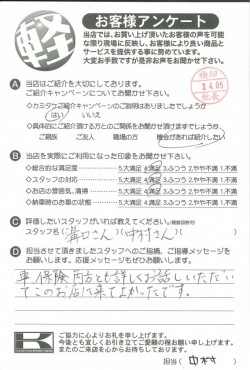 軽
お客様アンケート
当店では、お買い上げ頂いたお客様の声を可能
な限り現場に反映し、お客様により良い商品と
サービスを提供する事に努めています。
大変お手数ですが是非お声をお聞かせ下さい。
検印
3.4.05
社長
A 当店はご紹介を大切にしております。
ご紹介キャンペーンについてお聞かせ下さい。
◇カミタケご紹介キャンペーンのご説明はありましたでしょうか
はい いいえ
◇具体的にご紹介頂ける方とのご関係をお聞かせ頂けますでしょうか
ご親族 ご友人 職場の方 機会があれば紹介したい
B 当店を実際ご利用になった印象をお聞かせ下さい。
◇総合的な満足度 5.大満足 4.満足 3.ふつう 2.やや不満 1.不満
◇スタッフの対応 5.大満足 4.満足 3.ふつう 2.やや不満 1.不満
◇お店の雰囲気、清掃 5.大満足 4.満足 3.ふつう 2.やや不満 1.不満
◇納車時のお車の状態 5.大満足 4.満足 3.ふつう 2.やや不満 1.不満
C 評価したいスタッフがいれば教えてください。(複数回答可)
スタッフ名(溝口さん)(中村さん)
D 担当させて頂きましたスタッフへのご指摘、ご指導メッセージを
お願いします。応援メッセージもぜひお願いします。
車、保険両方とも詳しくお話しいただい
てこのお店に来てよかったです。
K
ご協力に心よりお礼を申し上げます。
今後とも宜しくお引き立てご愛顧の程お願い申し上げます。
またのご来店を心からお待ちしております。
担当(中村)